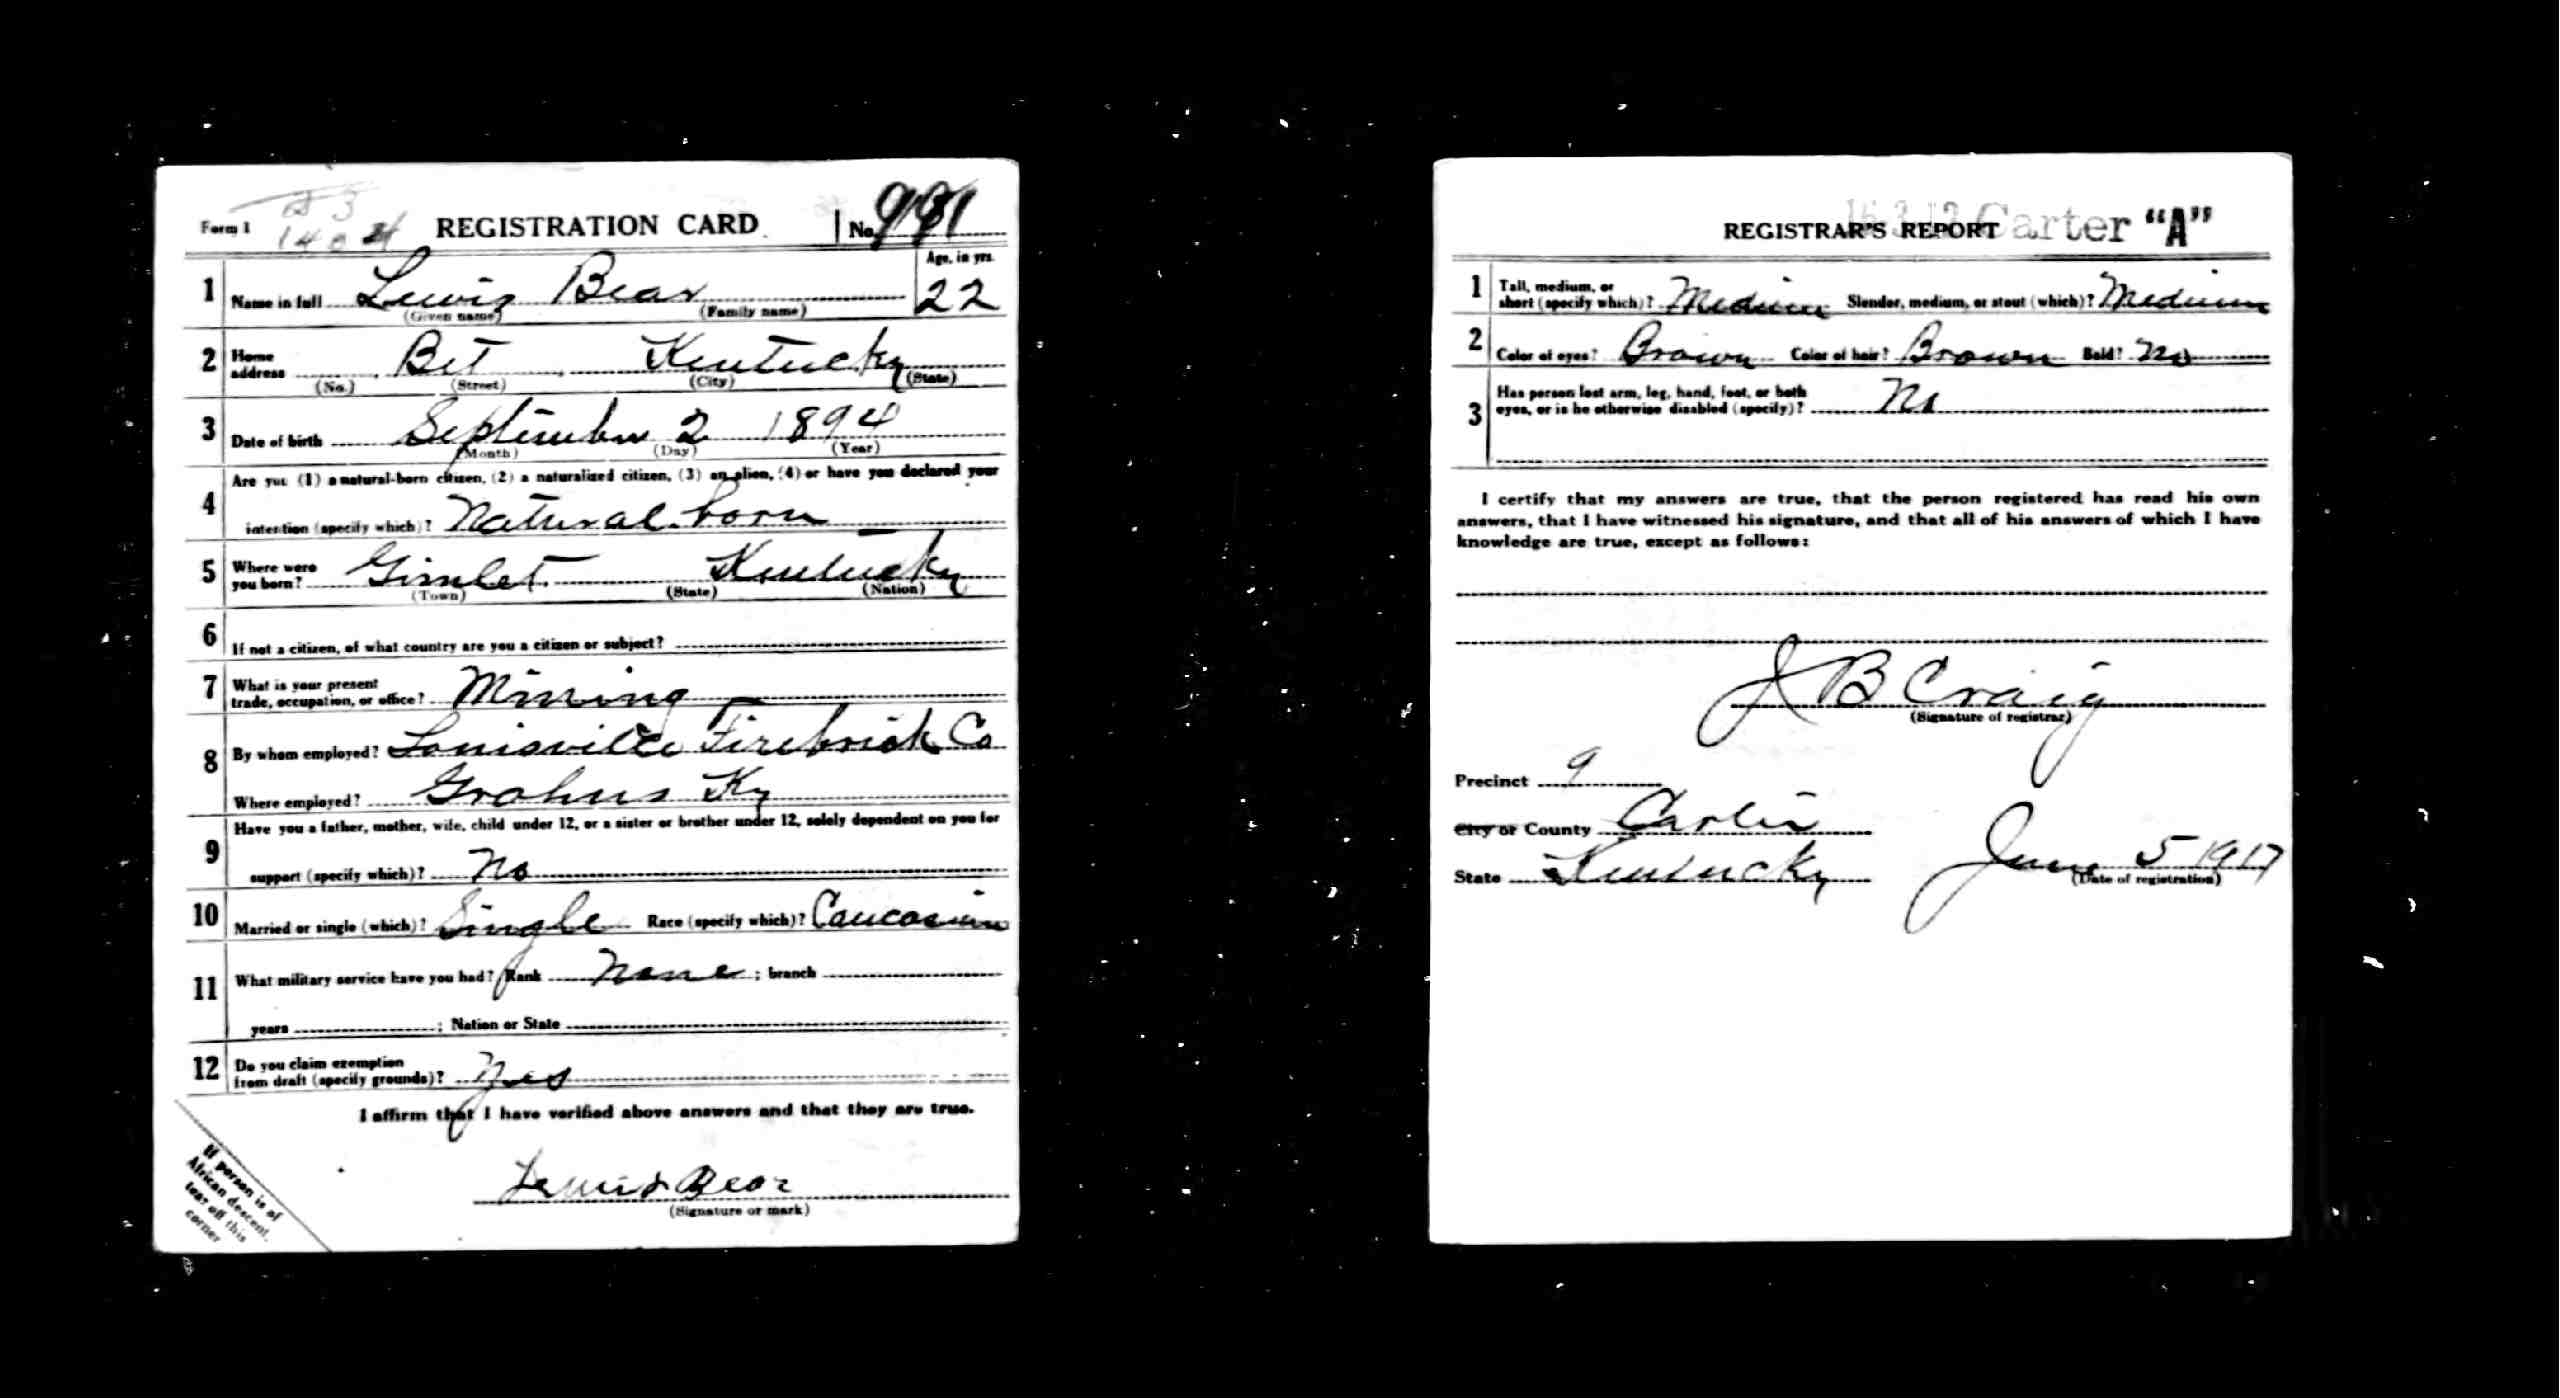 Form 1 REGISTRATION CARD No.
1 Name in full Lewis Bear Age, in yrs. 22
(Given name) (Family name)
2 Home address Bet Kentucky
(No.) (Street) (City) (State)
3 Date of birth September 2 1894
(Month) (Day) (Year)
4 Are you (1) a natural-born citizen, (2) a naturalized citizen, (3) an alien, (4) or have you declared your
intention (specify which)? Natural born
5 Where were you born? Gimlet Kentucky
(Town) (State) (Nation)
6 If not a citizen, of what country are you a citizen or subject?
7 What is your present trade, occupation, or office? Mining
8 By whom employed? Louisville Firebrick Co
Where employed? Grahns Ky
9 Have you a father, mother, wife, child under 12, or a sister or brother under 12, solely dependent on you for
support (specify which)? No
10 Married or single (which)? Single Race (specify which)? Caucasian
11 What military service have you had? Rank None ; branch
years ; Nation or State
12 Do you claim exemption from draft (specify grounds)? Yes
I affirm that I have verified above answers and that they are true.
Lewis Bear
(Signature or mark)
If person is of
African descent,
tear off this
corner
REGISTRAR'S REPORT Carter "A"
1 Tall, medium, or short (specify which)? Medium Slender, medium, or stout (which)? Medium
2 Color of eyes? Brown Color of hair? Brown Bald? No
3 Has person lost arm, leg, hand, foot, or both
eyes, or is he otherwise disabled (specify)? No
I certify that my answers are true, that the person registered has read his own
answers, that I have witnessed his signature, and that all of his answers of which I have
knowledge are true, except as follows:
J B Craig
(Signature of registrar)
Precinct 9
City or County Carter
State Kentucky June 5 1917
(Date of registration)